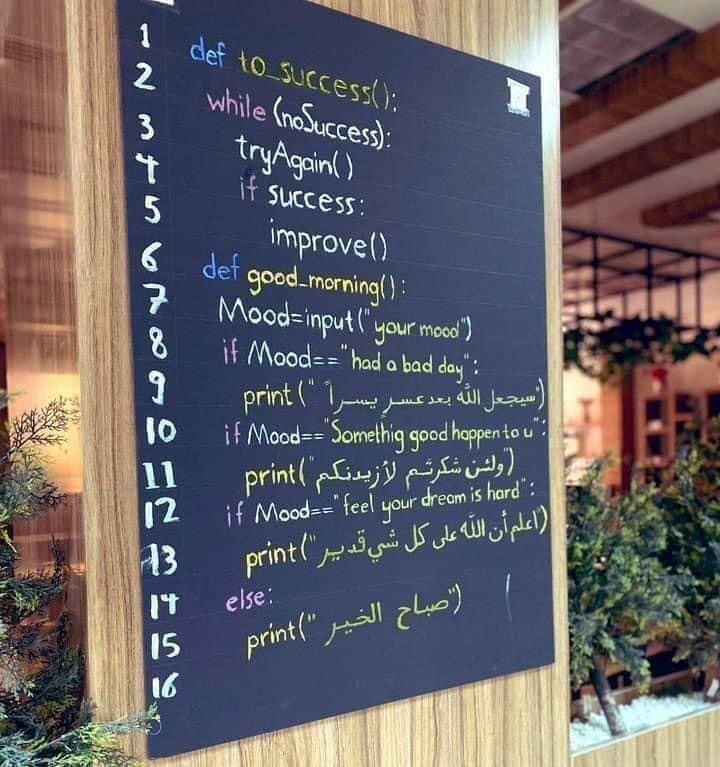 1 def to_success():
2 while (noSuccess):
3 tryAgain()
4 if success:
5 improve()
6 def good_morning():
7 Mood=input("your mood")
8 if Mood=="had a bad day":
9 print("سيجعل الله بعد عسر يسراً")
10 if Mood=="Somethig good happen to u":
11 print("ولئن شكرتم لأزيدنكم")
12 if Mood=="feel your dream is hard":
13 print("اعلم أن الله على كل شي قدير")
14 else:
15 print("صباح الخير")
16